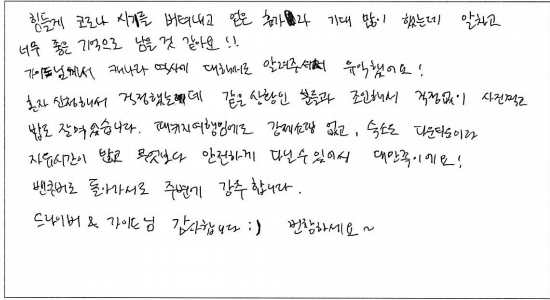 힘들게 코로나 시기를 버텨내고 얻은 휴가라 기대 많이 했는데 알차고
너무 좋은 기억으로 남을 것 같아요!!
가이드님께서 캐나다 역사에 대해서도 알려주셔서 유익했어요!
혼자 신청해서 걱정했는데 같은 상황인 분들과 조인해서 걱정없이 사진찍고
밥도 잘먹었습니다. 패키지여행임에도 강제쇼핑 없고, 숙소도 다운타운이라
자유시간이 많고 무엇보다 안전하게 다닐수있어서 대만족이에요!
밴쿠버로 돌아가서도 주변에 강추합니다.
드라이버 & 가이드님 감사합니다 :) 번창하세요~